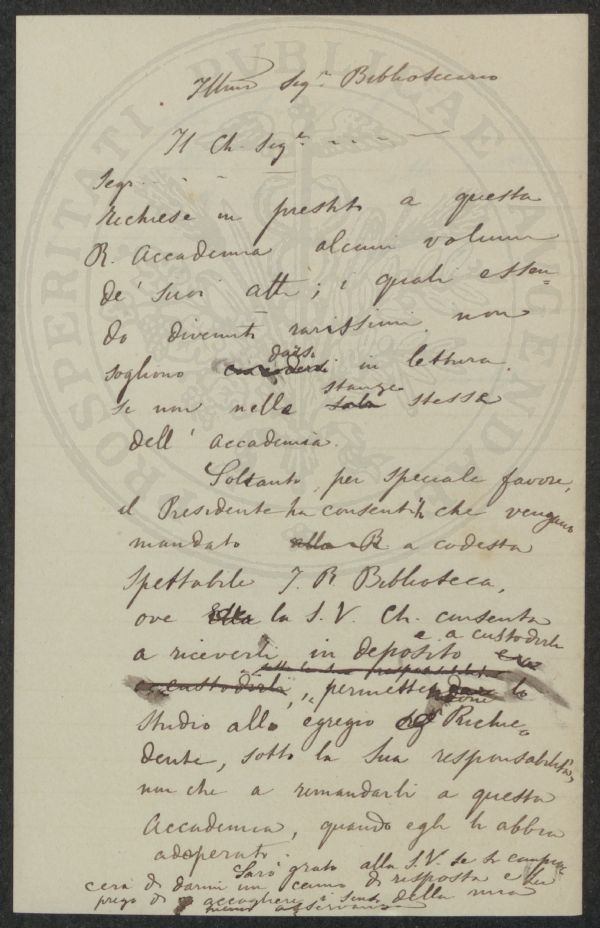 Illmo Sigr. Bibliotecario
Il Ch. Sigr. - - - -
Segr. . . . -
richiese in prestito a questa
R. Accademia alcuni volumi
de' suoi atti; i quali essen=
do divenuti rarissimi, non
sogliono darsi in lettura
se non nelle stanze sala stessa
dell' Accademia.
Soltanto, per speciale favore,
il Presidente ha consentito che vengano
mandato alla R a codesta
Spettabile I. R Biblioteca,
ove Ella la S. V. Ch. consenta
a riceverli in deposito e a custodirli
o custodirli, permettendone lo
studio allo egregio Sigr Richie=
dente, sotto la sua responsabilità,
non che a rimandarli a questa
Accademia, quando egli li abbia
adoperati.
Sarò grato alla S.V. se si compia
cerà di darmi un cenno di risposta e La
prego di accogliere i sensi della mia
osservanza
PROSPERITATI PVBLICAE AVGENDAE